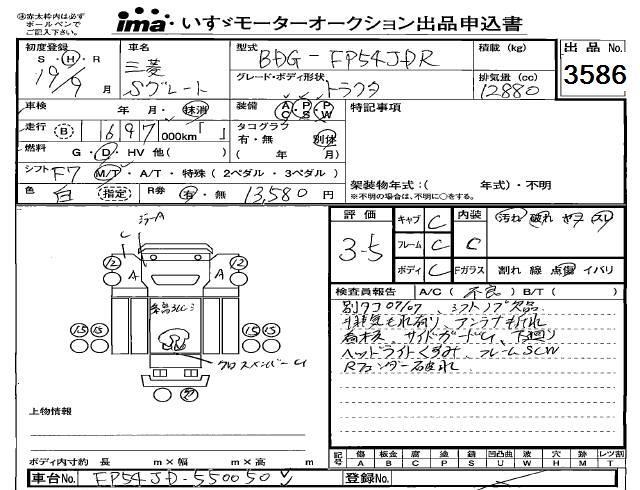 ㊟赤太枠内は必ず
ボールペンで
ご記入下さい。
ima いすゞモーターオークション出品申込書
初度登録 車名 型式 BDG-FP54JDR 積載(kg) 出品No.
S・H・R 三菱 グレード・ボディ形状 排気量(cc) 3586
19/9月 Sグレート トラクタ 12880
車検 年 月・抹消 装備 AC・PS・PW 特記事項
走行 B 1697 000km「 」 タコグラフ 有・無 別体
燃料 G・D・HV 他( ) ( 年 月)
シフト F7 M/T・A/T・特殊(2ペダル・3ペダル) 架装物年式:( 年式)・不明
色 白 指定 R券 有・無 13,580円 ※不明の場合は、不明に○をする。
評価 キャブ C 内装 汚れ 破れ ヤケ スリ
3-5 フレーム C C
ボディ C Fガラス 割れ 線 点傷 イバリ
ミラーA
12 A A 12
15 15 15 15
クロスメンバーU
検査員報告 A/C(不良)B/T( )
別タコ07/07、シフトノブ欠品
排気もれ有り、アンテナ折れ
サイドガードU、下廻り
ヘッドライトくすみ、フレームSCW
Rフェンダー石皮れ
上物情報
ボディ内寸約 長 m×幅 m×高 m
記号 傷A 板金B 腐C 塗P 錆S 凹凸曲U 波W 穴H 跡M レツ割T
車台No. FP54JD-550050 登録No.